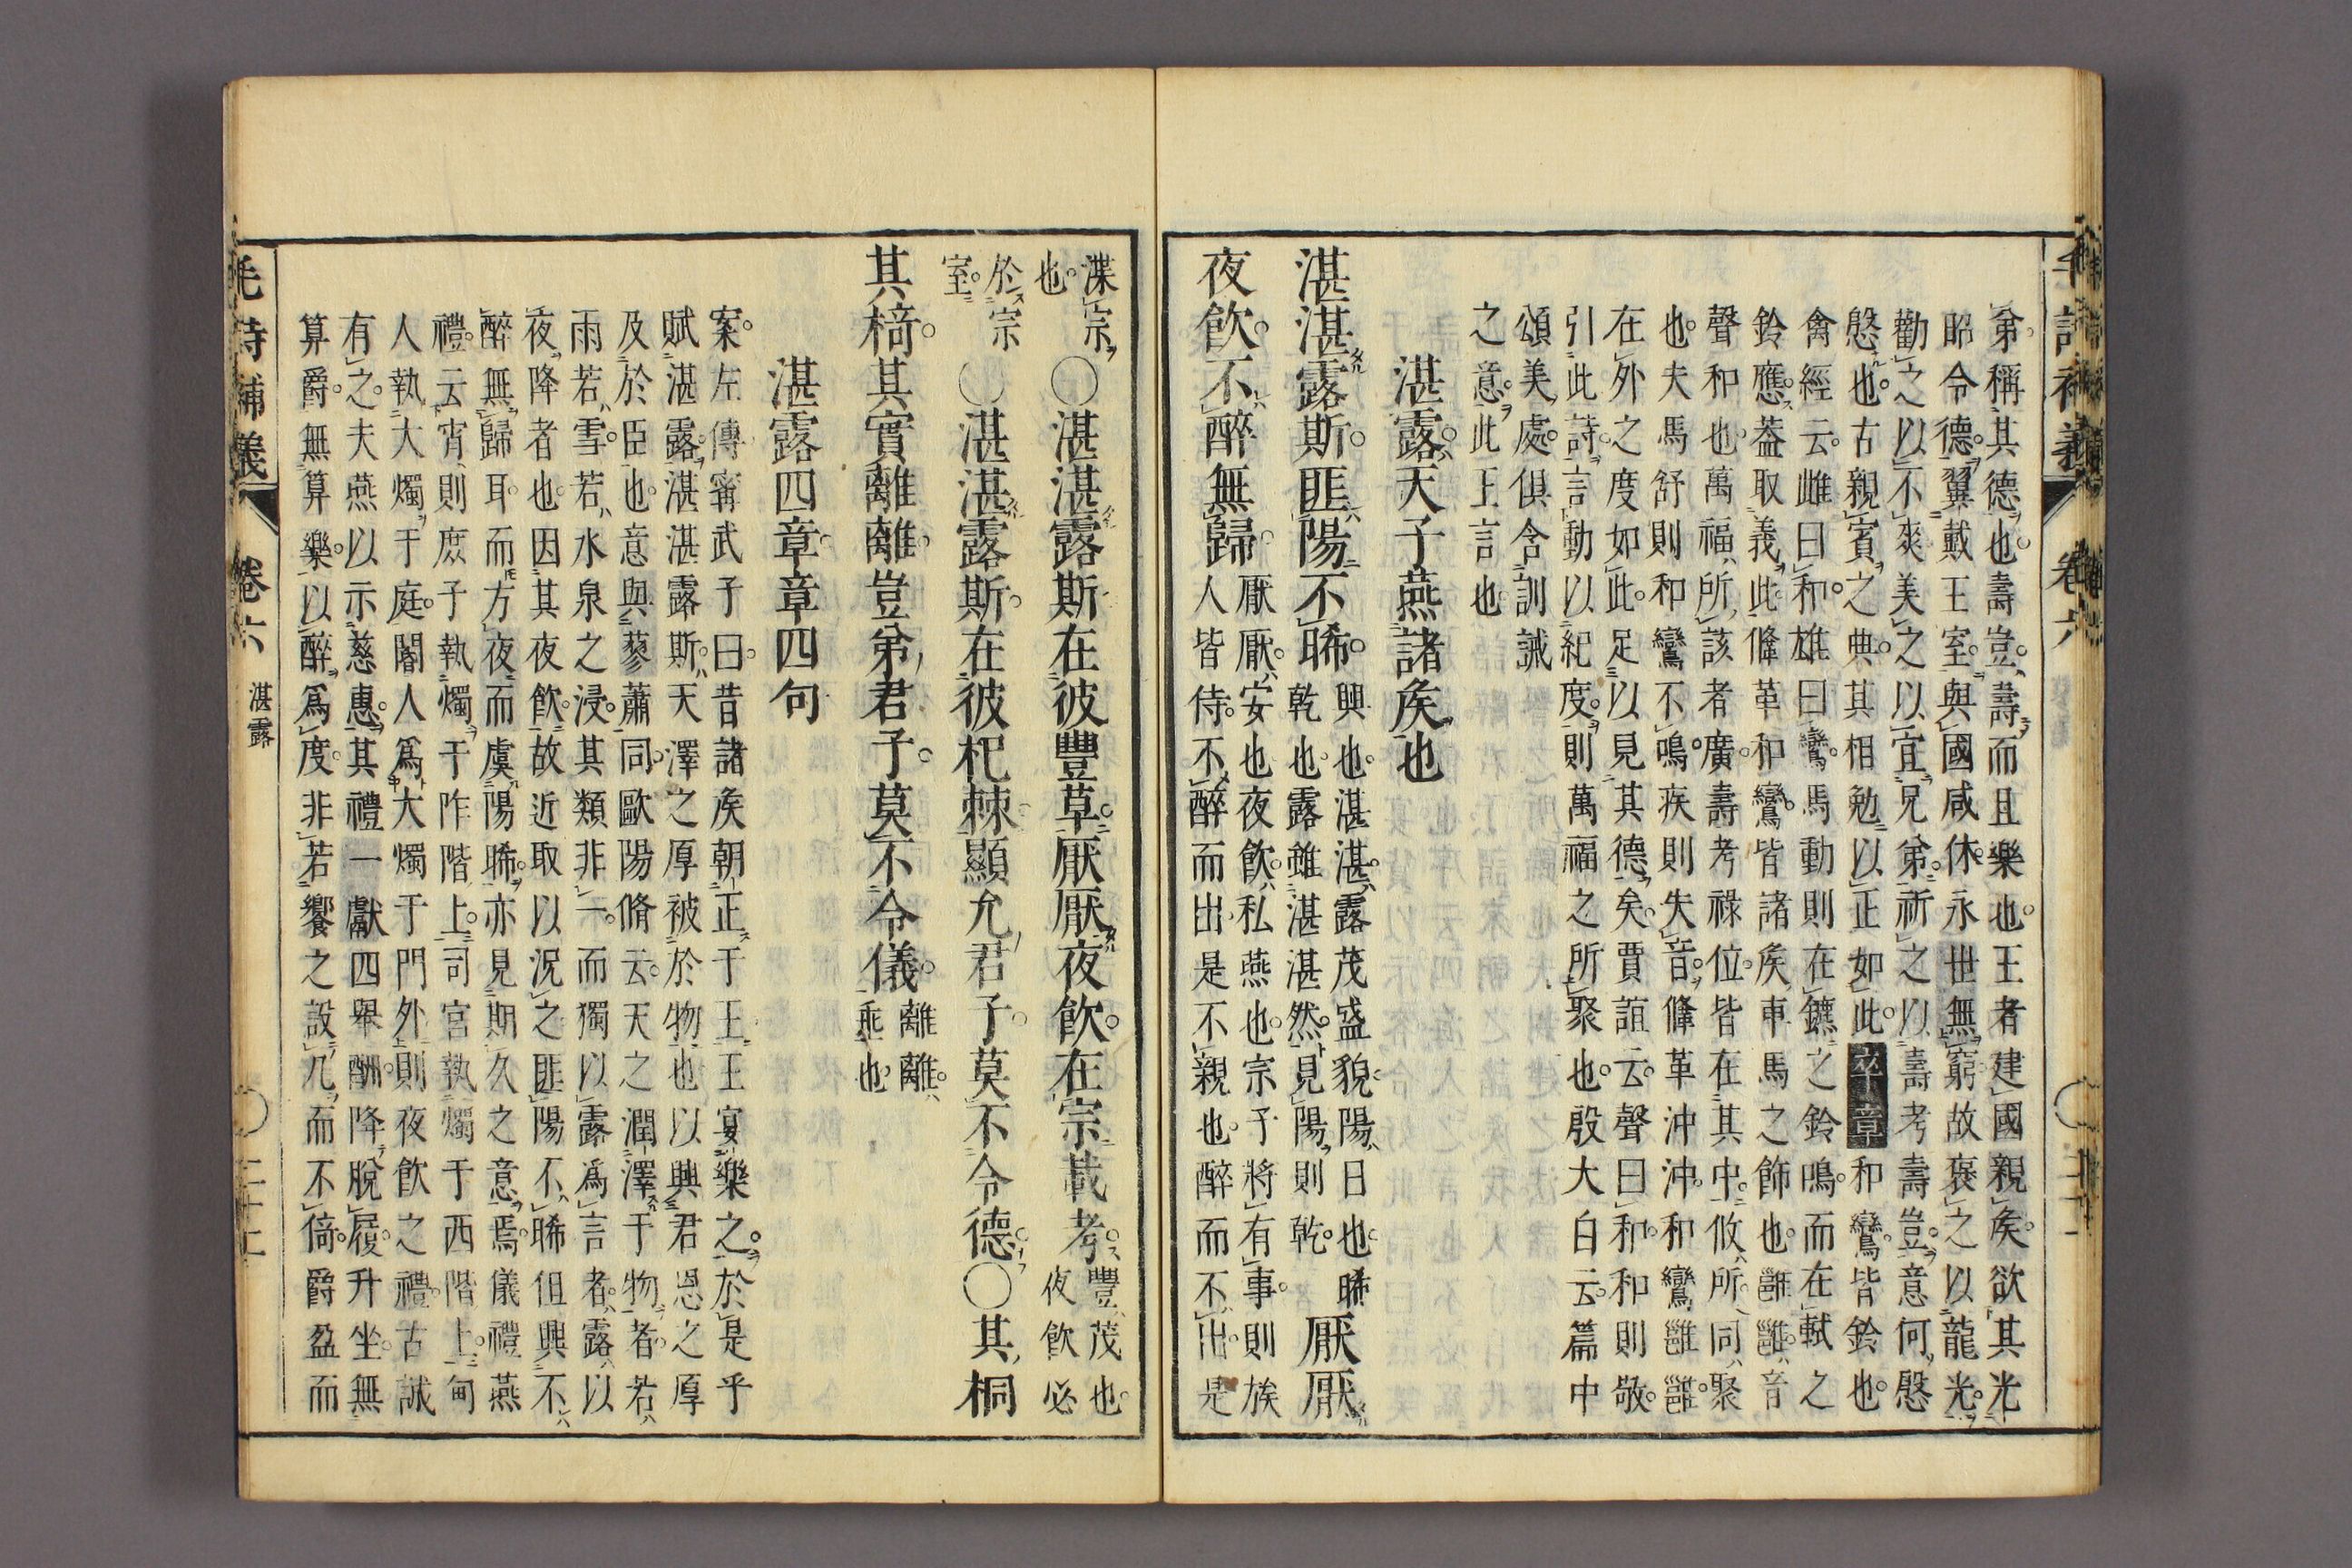 弟稱其德也壽豈壽而且樂也王者建國親矦欲其光
昭令德翼戴王室與國咸休永世無窮故褒之以龍光
勸之以不爽美之以宜兄弟祈之以壽考壽豈意何慇
慇也古親賓之典其相勉以正如此卒章和鸞皆鈴也
禽經云雌曰和雄曰鸞馬動則在鑣之鈴鳴而在軾之
鈴應葢取義此鞗革和鸞皆諸矦車馬之飾也雝雝音
聲和也萬福所該者廣壽考祿位皆在其中攸所同聚
也夫馬舒則和鸞不鳴疾則失音鞗革沖沖和鸞雝雝
在外之度如此足以見其德矣賈誼云聲曰和和則敬
引此詩言動以紀度則萬福之所聚也殷大白云篇中
頌美處俱含訓誡
之意此王言也
湛露天子燕諸矦也
湛湛露斯匪陽不晞興也湛湛露茂盛貌陽日也晞乾也露雖湛湛然見陽則乾厭厭
夜飲不醉無歸厭厭安也夜飲私燕也宗子將有事則族人皆侍不醉而出是不親也醉而不出是
渫宗也○湛湛露斯在彼豐草厭厭夜飲在宗載考豐茂也夜飲必
於宗室○湛湛露斯在彼杞棘顯允君子莫不令德○其桐
其椅其實離離豈弟君子莫不令儀離離垂也
湛露四章章四句
案左傳甯武子曰昔諸矦朝正于王王宴樂之於是乎
賦湛露湛湛露斯天澤之厚被於物也以興君恩之厚
及於臣也意與蓼蕭同歐陽脩云天之潤澤于物者若
雨若雪若水泉之浸其類非一而獨以露爲言者露以
夜降者也因其夜飲故近取以況之匪陽不晞但興不
醉無歸耳而方夜而虞陽晞亦見期久之意焉儀禮燕
禮云宵則庶子執燭于阼階上司宮執燭于西階上甸
人執大燭于庭閽人爲大燭于門外則夜飲之禮古誠
有之夫燕以示慈惠其禮一獻四舉酬降脫屨升坐無
算爵無算樂以醉爲度非若饗之設几而不倚爵盈而
毛詩補義 卷六 湛露